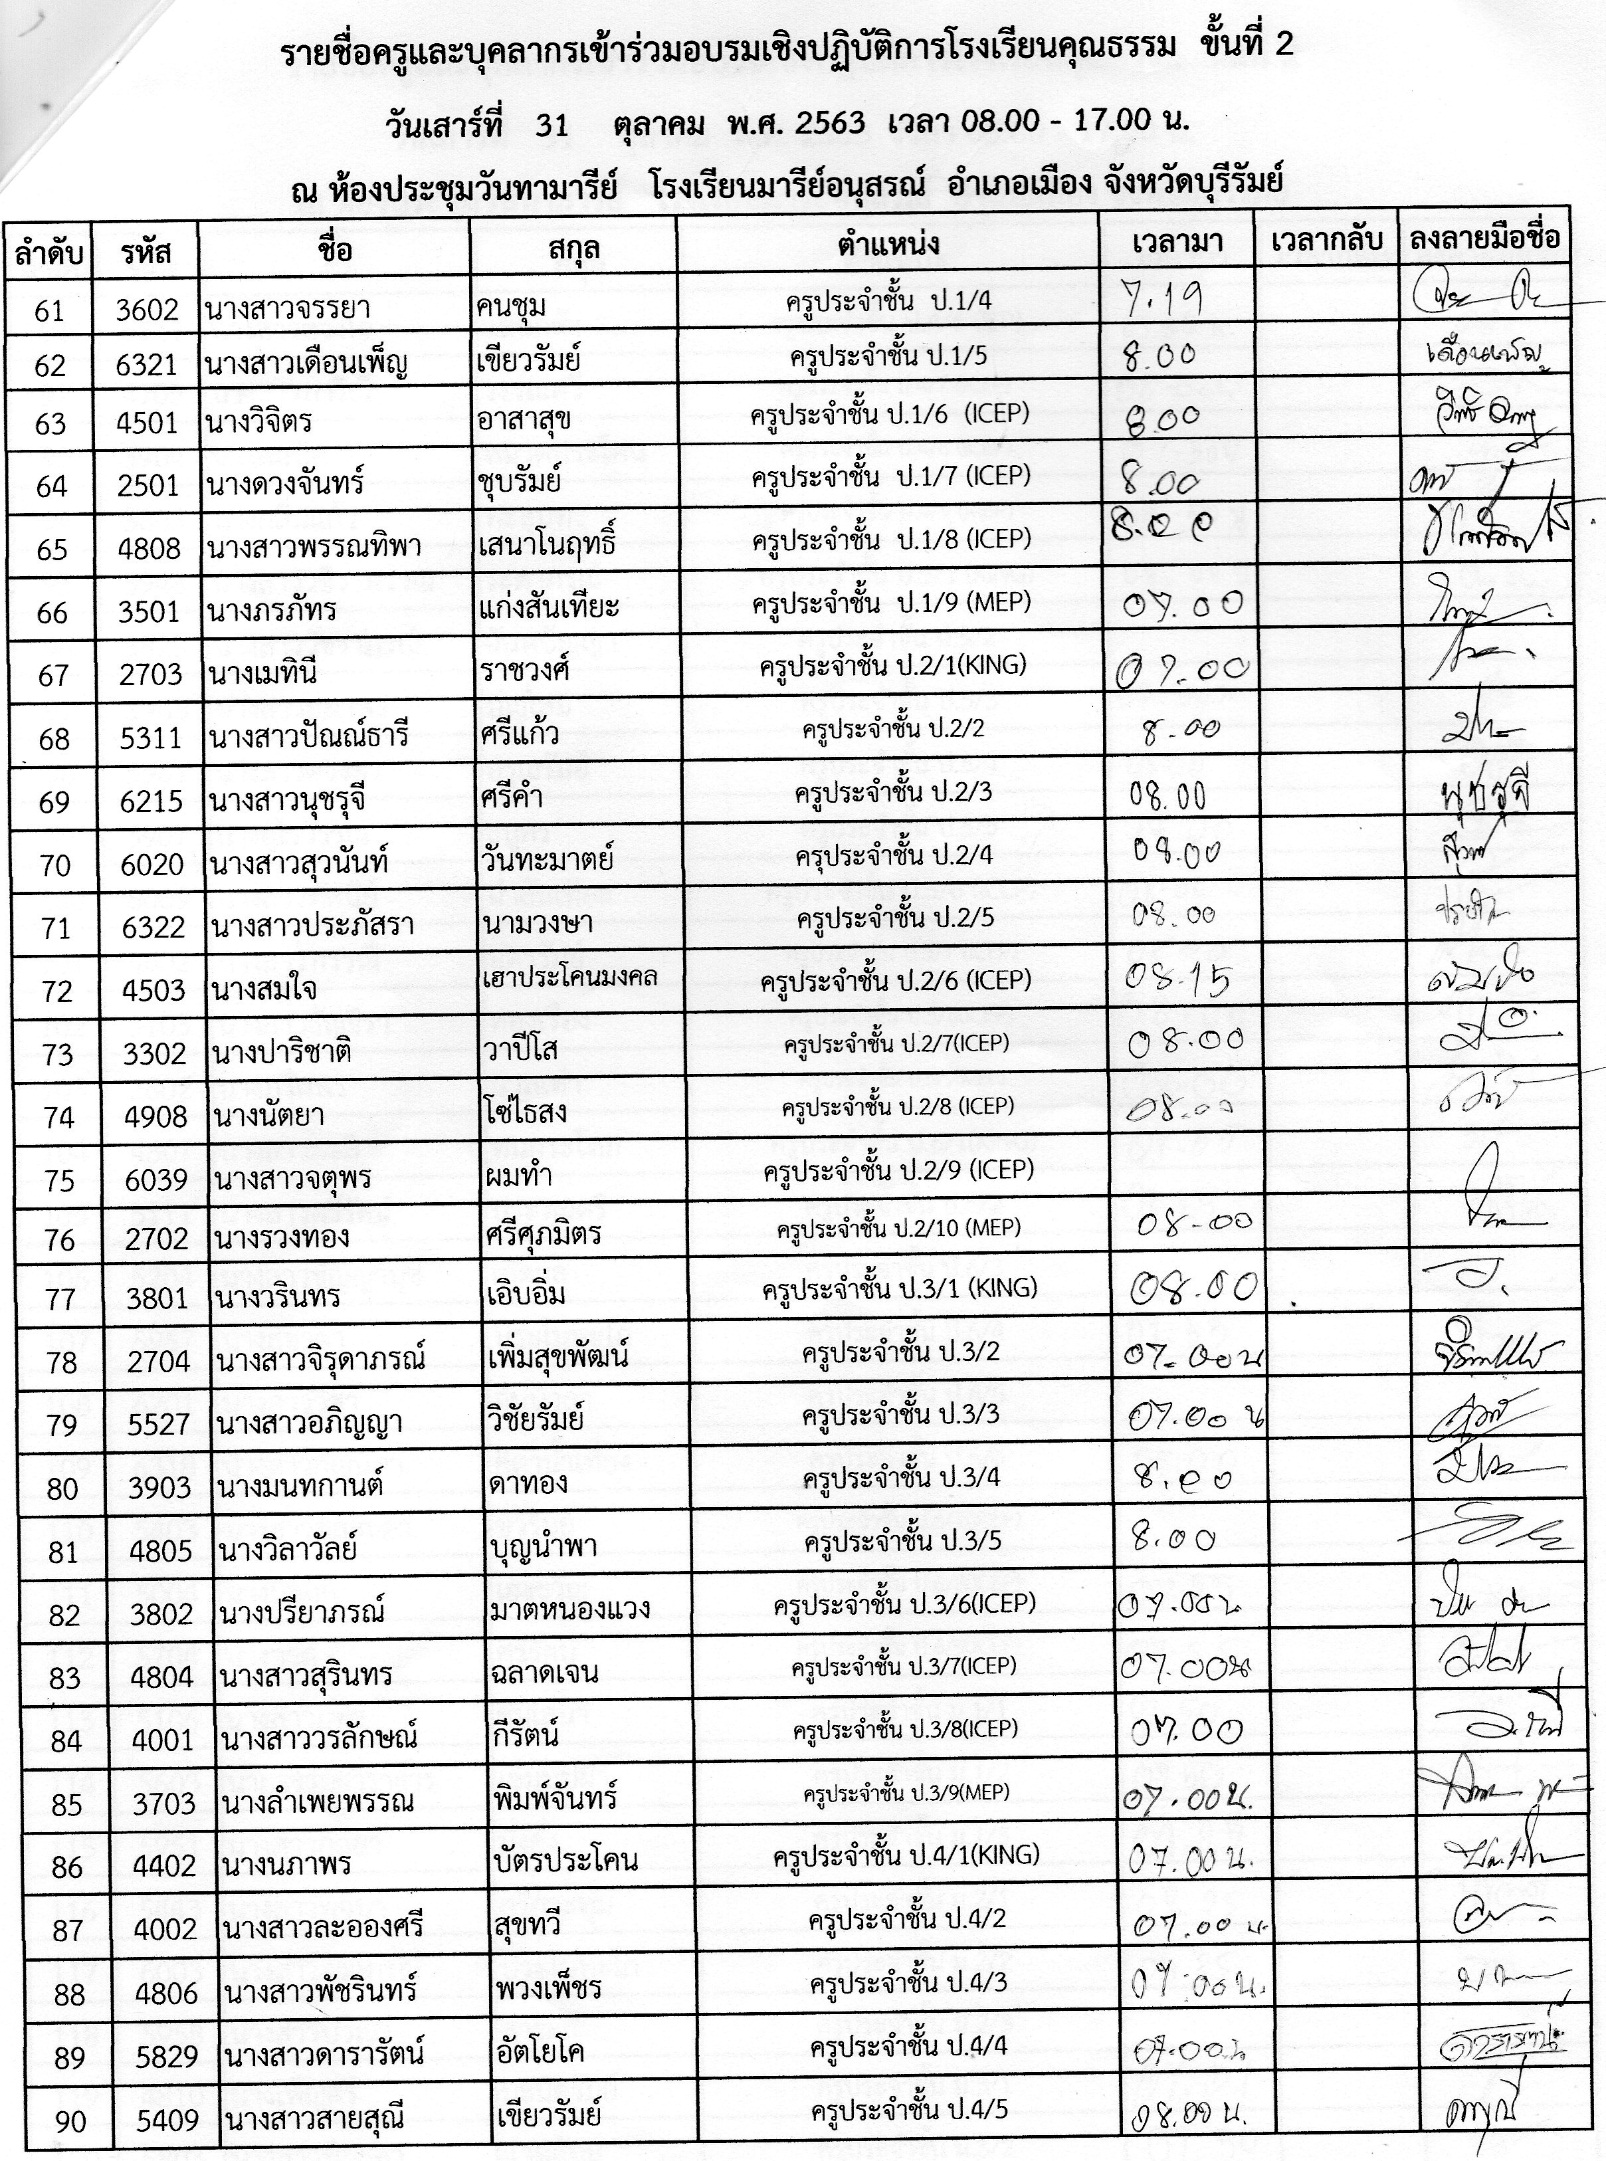 รายชื่อครูและบุคลากรเข้าร่วมอบรมเชิงปฏิบัติการโรงเรียนคุณธรรม ขั้นที่ 2
วันเสาร์ที่ 31 ตุลาคม พ.ศ. 2563 เวลา 08.00 - 17.00 น.
ณ ห้องประชุมวันทามารีย์ โรงเรียนมารีย์อนุสรณ์ อำเภอเมือง จังหวัดบุรีรัมย์
ลำดับ รหัส ชื่อ สกุล ตำแหน่ง เวลามา เวลากลับ ลงลายมือชื่อ
61 3602 นางสาวจรรยา คนชุม ครูประจำชั้น ป.1/4 7.19
62 6321 นางสาวเดือนเพ็ญ เขียวรัมย์ ครูประจำชั้น ป.1/5 8.00 เดือนเพ็ญ
63 4501 นางวิจิตร อาสาสุข ครูประจำชั้น ป.1/6 (ICEP) 8.00
64 2501 นางดวงจันทร์ ชุบรัมย์ ครูประจำชั้น ป.1/7 (ICEP) 8.00
65 4808 นางสาวพรรณทิพา เสนาโนฤทธิ์ ครูประจำชั้น ป.1/8 (ICEP) 8.00
66 3501 นางภรภัทร แก่งสันเทียะ ครูประจำชั้น ป.1/9 (MEP) 07.00
67 2703 นางเมทินี ราชวงศ์ ครูประจำชั้น ป.2/1(KING) 07.00
68 5311 นางสาวปัณณ์ธารี ศรีแก้ว ครูประจำชั้น ป.2/2 8.00
69 6215 นางสาวนุชรุจี ศรีคำ ครูประจำชั้น ป.2/3 08.00 นุชรุจี
70 6020 นางสาวสุวนันท์ วันทะมาตย์ ครุประจำชั้น ป.2/4 08.00
71 6322 นางสาวประภัสรา นามวงษา ครูประจำชั้น ป.2/5 08.00
72 4503 นางสมใจ เฮาประโคนมงคล ครูประจำชั้น ป.2/6 (ICEP) 08.15 สมใจ
73 3302 นางปาริชาติ วาปีโส ครูประจำชั้น ป.2/7(ICEP) 08.00
74 4908 นางนัตยา โซ่ไธสง ครูประจำชั้น ป.2/8 (ICEP) 08.00
75 6039 นางสาวจตุพร ผมทำ ครูประจำชั้น ป.2/9 (ICEP)
76 2702 นางรวงทอง ศรีศุภมิตร ครูประจำชั้น ป.2/10 (MEP) 08-00
77 3801 นางวรินทร เอิบอิ่ม ครูประจำชั้น ป.3/1 (KING) 08.00
78 2704 นางสาวจิรุดาภรณ์ เพิ่มสุขพัฒน์ ครูประจำชั้น ป.3/2 07.00น
79 5527 นางสาวอภิญญา วิชัยรัมย์ ครูประจำชั้น ป.3/3 07.00 น
80 3903 นางมนทกานต์ ดาทอง ครูประจำชั้น ป.3/4 8.00
81 4805 นางวิลาวัลย์ บุญนำพา ครูประจำชั้น ป.3/5 8.00
82 3802 นางปรียาภรณ์ มาตหนองแวง ครูประจำชั้น ป.3/6(ICEP) 07.00น
83 4804 นางสาวสุรินทร ฉลาดเจน ครูประจำชั้น ป.3/7(ICEP) 07.00น
84 4001 นางสาววรลักษณ์ กีรัตน์ ครูประจำชั้น ป.3/8(ICEP) 07.00
85 3703 นางลำเพยพรรณ พิมพ์จันทร์ ครูประจำชั้น ป.3/9(MEP) 07.00น.
86 4402 นางนภาพร บัตรประโคน ครูประจำชั้น ป.4/1(KING) 07.00น.
87 4002 นางสาวละอองศรี สุขทวี ครูประจำชั้น ป.4/2 07.00น.
88 4806 นางสาวพัชรินทร์ พวงเพ็ชร ครูประจำชั้น ป.4/3 07.00น.
89 5829 นางสาวดารารัตน์ อัตโยโค ครูประจำชั้น ป.4/4 07.00น ดารารัตน์
90 5409 นางสาวสายสุณี เขียวรัมย์ ครูประจำชั้น ป.4/5 08.00น.